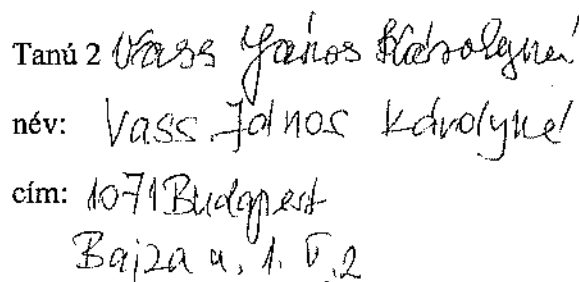 Tanú 2 Vass János Károlyné
név: Vass János Károlyné
cím: 1071 Budapest
Bajza u. 1. V. 2